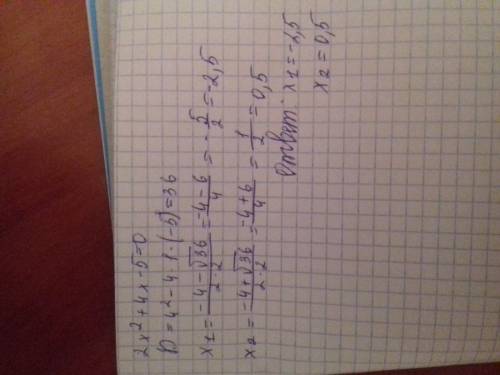 2x²+4x-5=0
D=4²-4·1·(-5)=36
x1=(-4-√36)/(2·2)=(-4-6)/4=-5/2=-2,5
x2=(-4+√36)/(2·2)=(-4+6)/4=1/2=0,5
Ответ: x1=-2,5
x2=0,5